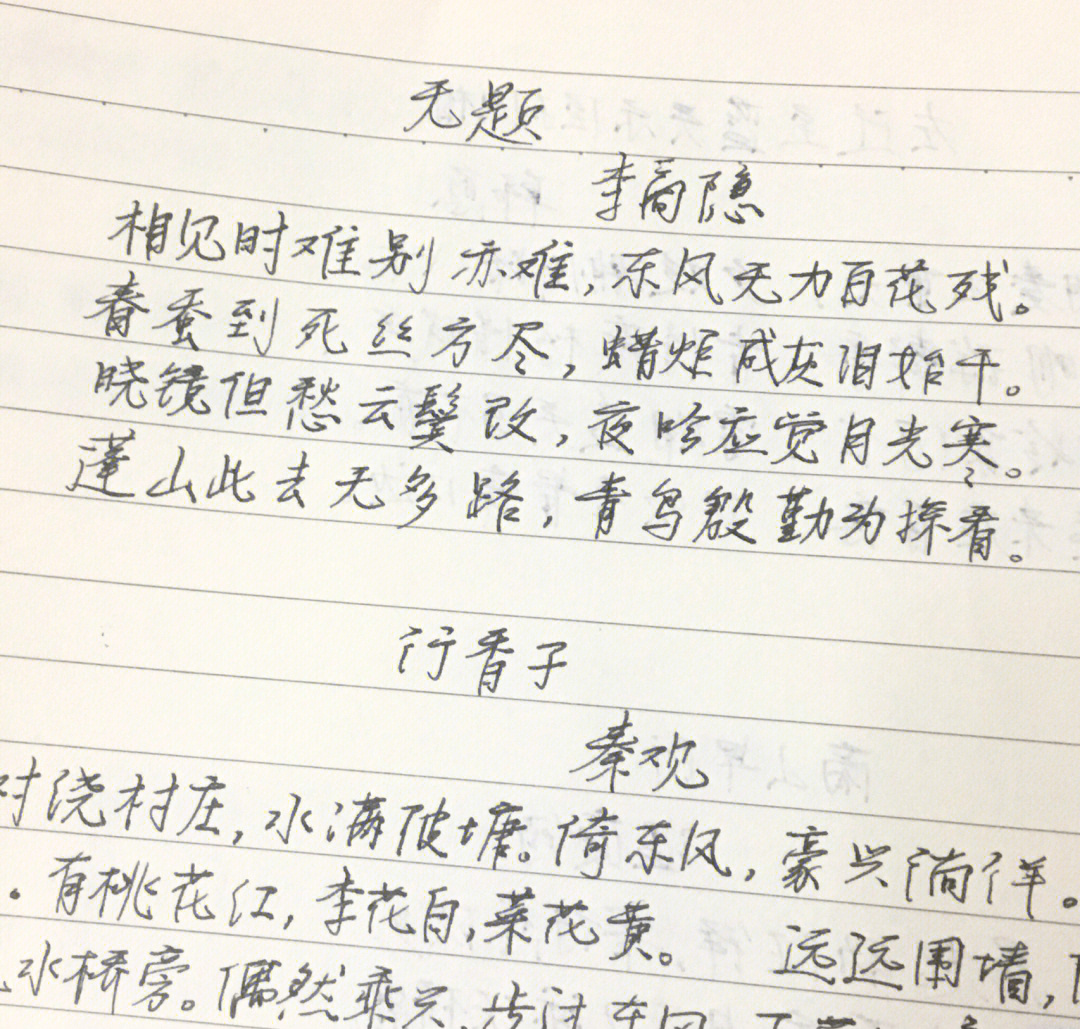 无题
李商隐
相见时难别亦难,东风无力百花残。
春蚕到死丝方尽,蜡炬成灰泪始干。
晓镜但愁云鬓改,夜吟应觉月光寒。
蓬山此去无多路,青鸟殷勤为探看。
行香子
秦观
树绕村庄,水满陂塘。倚东风,豪兴徜徉。
。有桃花红,李花白,菜花黄。 远远围墙,
水桥旁。偶然乘兴,步过东冈。